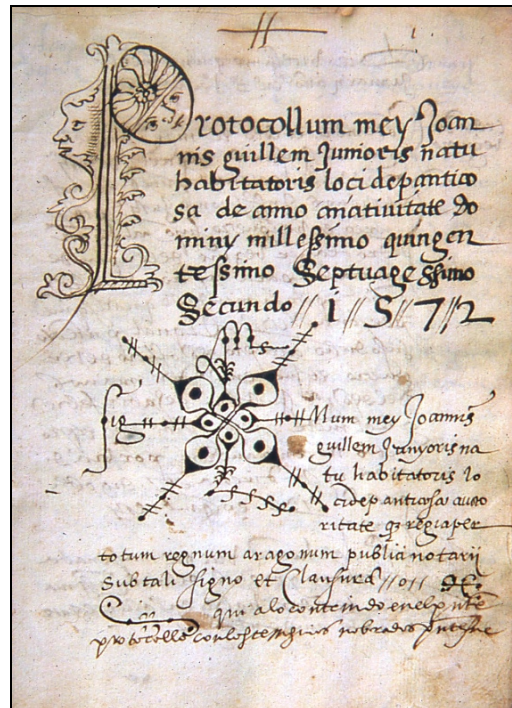 Protocollum mey Joan
nis guillem Junioris natu
habitatoris loci de pantico
sa de anno anativitate do
miny millessimo quingen
tessimo Septuagessimo
Secundo // 1 // 5 // 7 // 2
Sig num mey Joannis
guillem Junyoris na
tu habitatoris lo
ci de panticosa auto
ritate qz regia per
totum regnum aragonum publici notarij
Sub tali signo et Clausura // o //
qui a lo contenido en el pnte
protocollo con los nobrados